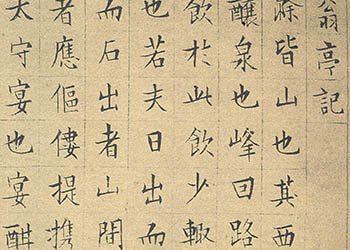 翁亭記
滁皆山也其西
釀泉也峰回路
飲於此飲少輒
也若夫日出而
而石出者山間
者應傴僂提携
太守宴也宴酣